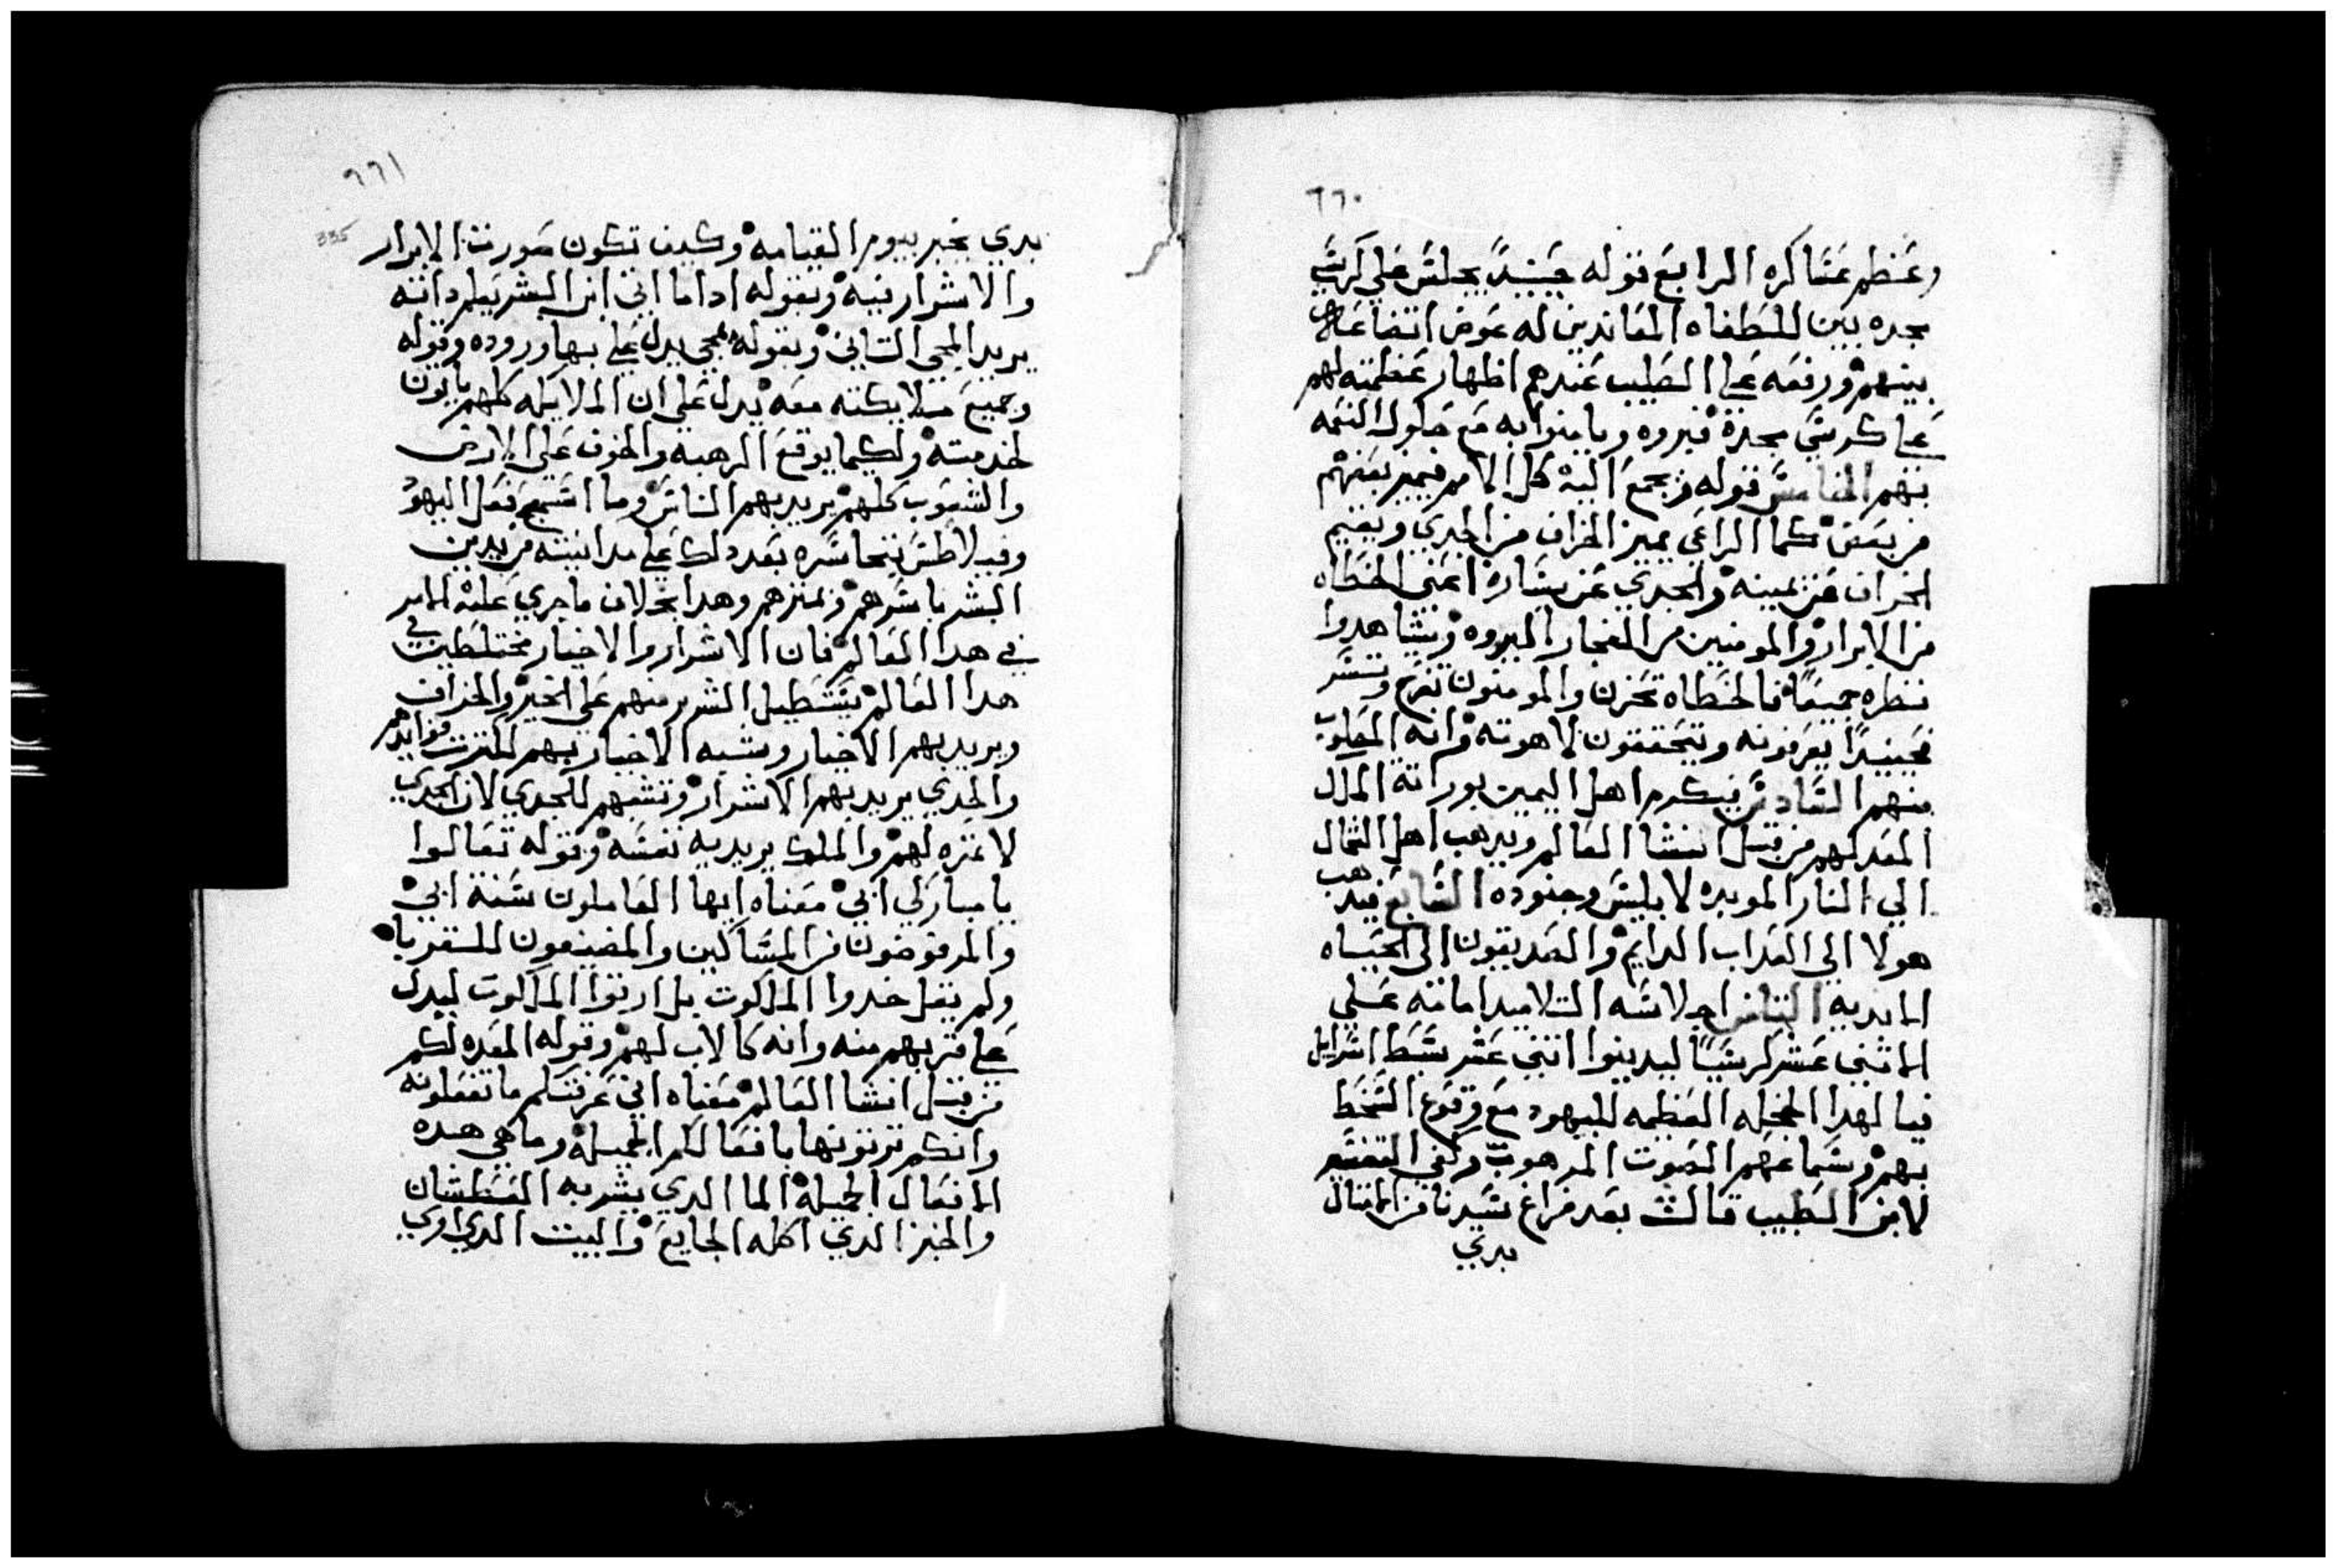 ٦٦٠
وعظم عساكره الرابع قوله حينيدًا يجلس علي كرسي
مجده بين للخطاه المعاندين له عوض اتضاعه
بينهم ورفعه علي الصليب عندهم اظهار عظمته لهم
علي كرسي مجدة فيروه ويامنوا به مع حلول النقمه
بهم الخامس قوله ويجمع اليه كل الامم فيميز بعضهم
من بعض كما الراعي يميز الخراف من الجدي ويقيم
الخراف عن يمينه والجدي عن يساره اعني الخطاه
من الابرار والمومنين من الفجار اليروه ويشاهدوا
نطره جميعًا فالخطاه تحزن والمومنون تفرح وتسر
فحينيدًا يعرفونه ويتحققون لاهوته وانه المصلوب
منهم السادس فيكرم اهل اليمين بوراتة الملك
المعد لهم من قبل انشا العالم ويدهب اهل الشمال
الي النار الموبده لابليس وجنوده السابع فيدهب
هولا الي العداب الدايم والصديقون الي الحياه
الابديه التامن اجلاسه التلاميد امامته علي
الاثني عشر كرسيًا ليدينوا اثني عشر سبط اسرايل
فيا لهدا الخجله العظمه لليهود مع وقوع السخط
بهم وسماعهم الصوت المرهوب وكفي التفسير
لابن الطيب قالت بعد فراغ سيدنا من الامتال
بدي
٦٦١
335
بدي يخبر بيوم القيامه وكيف تكون صورت الابرار
والاشرار فيه وبقوله ادا ما اتي ابن البشر بمجد انته
يريد المجي التاني وبقوله بمجد يدل علي بها وروده وقوله
وجميع ملايكته معه يدل علي ان الملايكه كلهم ياتون
لخدمته ولكيما يوقع الرهبه والخوف علي الارض
والشعوب كلهم يريد بهم الناس وما اسمج فعل اليهود
وفيلاطس بتجاسره بعد دلك علي مداينته من يدين
البشر باسرهم ويميزهم وهدا بخلاف ما جري عليه الامر
في هدا العالم فان الاشرار والاخيار مختلطين في
هدا العالم يستطيل الشرير منهم علي الخير والخراف
ويريد بهم الاخيار ويشبه الاخيار بهم لكترت فوايدهم
والجدي يريد بهم الاشرار وتشبهم للجدي لان الجدي
لا تمره لهم والملك يريد به نفسه وقوله تعالوا
يا مباركي ابي معناه ايها العاملون سنة ابي
والمرفوضون من المساكين والمضيفون للغربا
ولم يقل خدوا الملكوت بل ارتوا الملكوت ليدل
علي قربهم منه وانه كالاب لهم وقوله المعده لكم
من قبل انشا العالم معناه اني عرفتكم ما تفعلونه
وانكم ترتونها بافعالكم الجميله وما هي هده
الافعال الجميلة الما الدي يشربه العطشان
والخبز الدي اكله الجايع والبيت الدي اوي